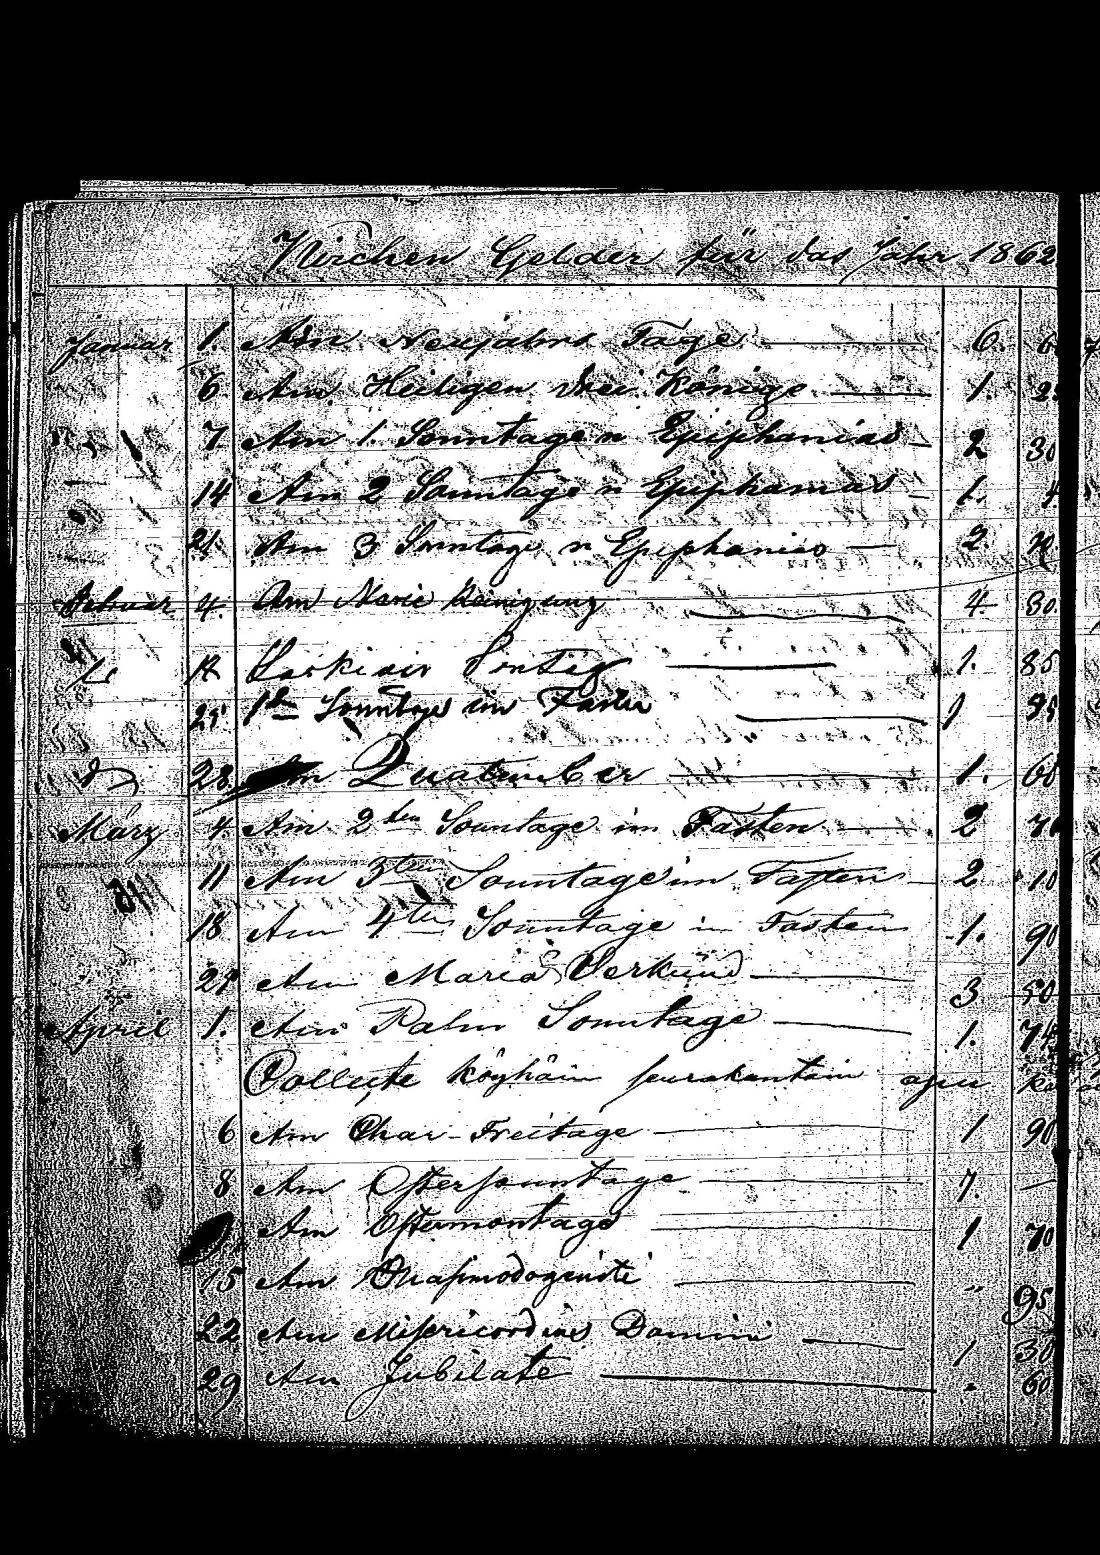 Kirchen Gelder für das Jahr 1862
Januar 1. Am Neujahrs Tage 6. 60
6. Am Heiligen drei Könige 1.
7. Am 1. Sonntage n Epiphanias 2 30
14 Am 2 Sonntage n Epiphanias 1.
21. Am 3 Sonntage n Epiphanias 2
Februar 4. Am Marie Reinigung 4 80.
1. 85
25 1te Sonntage im Fasten 1 95
28. Am Quatember 1. 60
März 4. Am 2ten Sonntage im Fasten 2 70
11 Am 3ten Sonntage im Fasten 2 10
18 Am 4ten Sonntage in Fasten 1. 90
25 Am Maria Verkünd 3 50
April 1. Am Palm Sonntage 1. 74
Collecte köyhäin seurakuntain apu
6 Am Char-Freitage 1 90
8 Am Ostersonntage 7. —
Am Ostermontage 1 70
15 Am Quasimodogeniti " 95
22 Am Misericordias Domini 1 30
29 Am Jubilate . 60